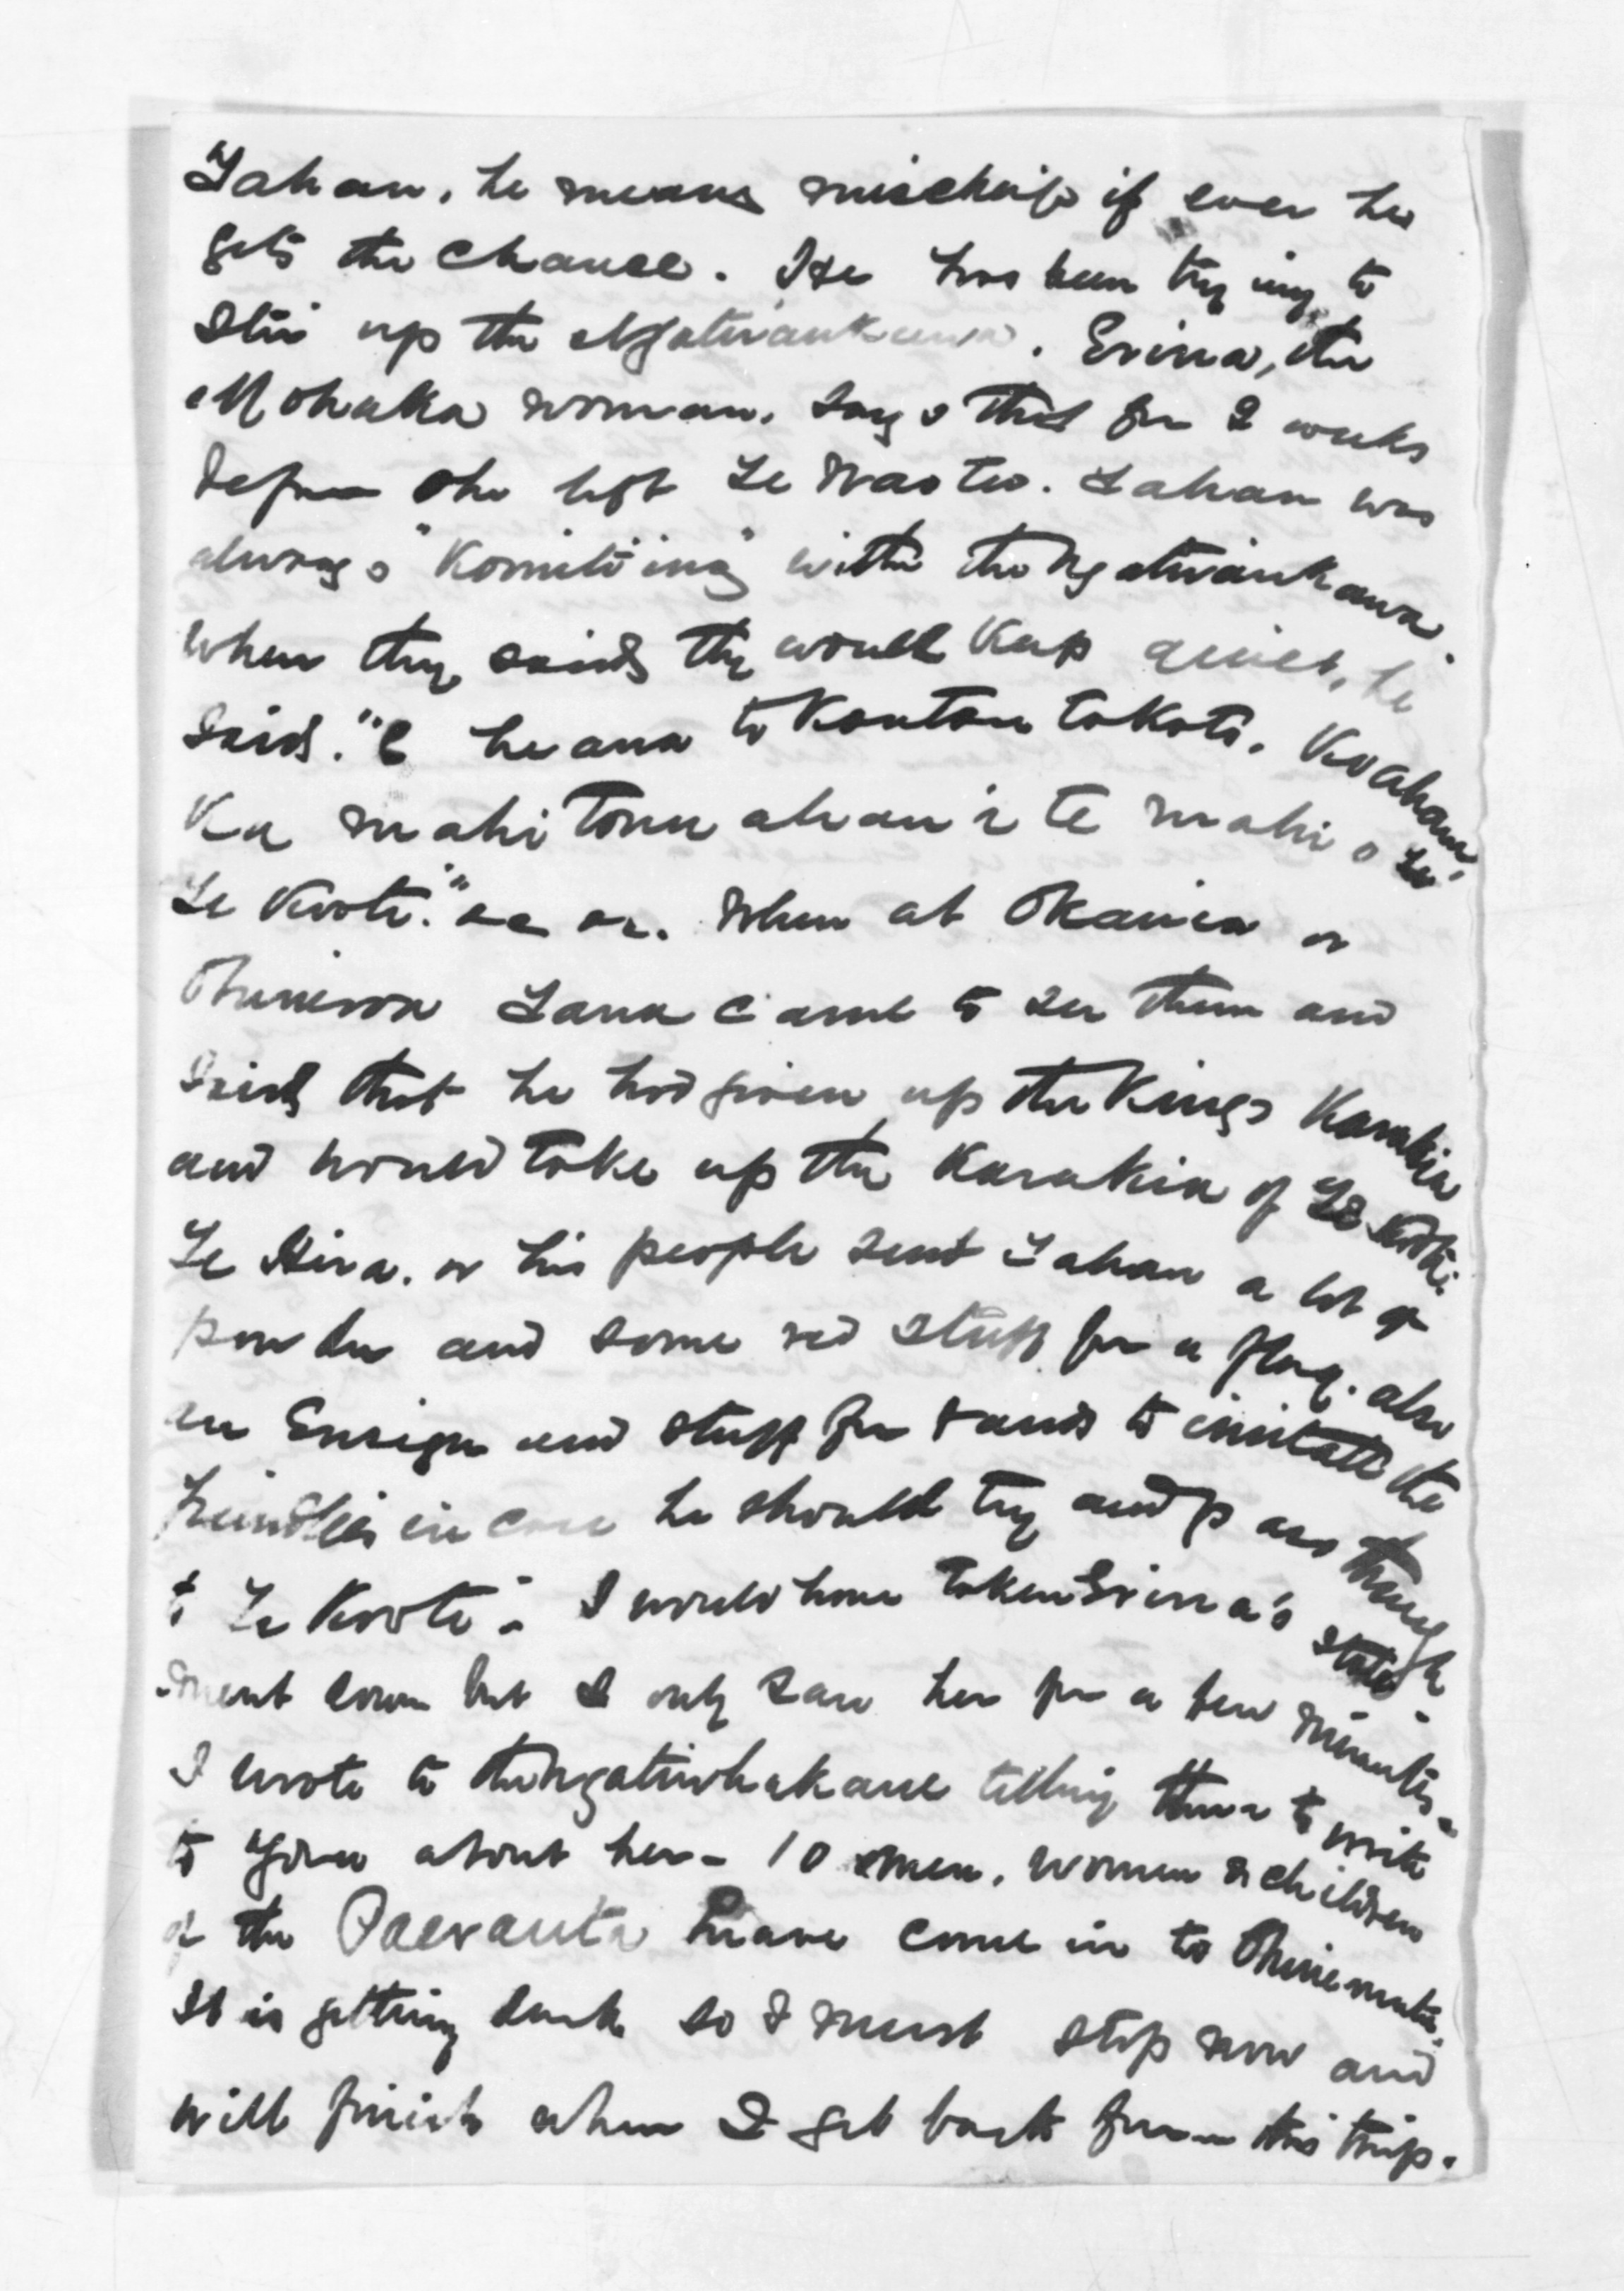 Tahau, he means mischeif if ever he
gets the chance. He has been trying to
Stir up the Ngatiraukawa. Erina, the
Mohaka woman, says that for 2 weeks
before she left Te Waotu. Tahau was
always "Komiti'ing" with the Ngatiraukawa.
When they said they would keep quiet, he
said. "E heana to Koutou takoto. Ko ahau,
Ka mahi tonu ahau i te mahi o Te
Te Kooti." &c &c. When at Okauia or
Ohineroa Tana came to see them and
said that he had given up the Kings Karakia
and would take up the Karakia of Te Kooti.
Te Hira. or his people sent Tahau a lot of
powder and some red stuff for a flag. also
an Ensign and stuff for bands to imitate the
friendlies in case he should try and pass through
to Te Kooti - I would have taken Erina's state-
ment down but I only saw her for a few minutes -
I wrote to the Ngatiwhakaue telling them to write
to you about her - 10 men, women & children
of the Paerauta have come in to Ohinemutu.
It is getting dark so I must stop now and
will finish when I get back from this trip.